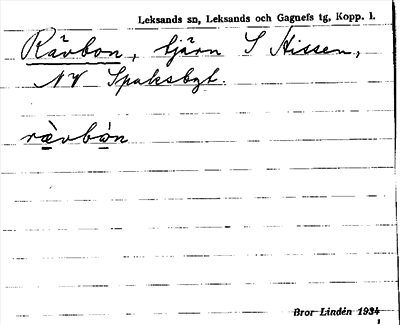 Leksands sn, Leksands och Gagnefs tg, Kopp. l.
Rävbon, tjärn S Hissen,
NV Spaksbgt.
rävbòn
Bror Lindén 1934
1